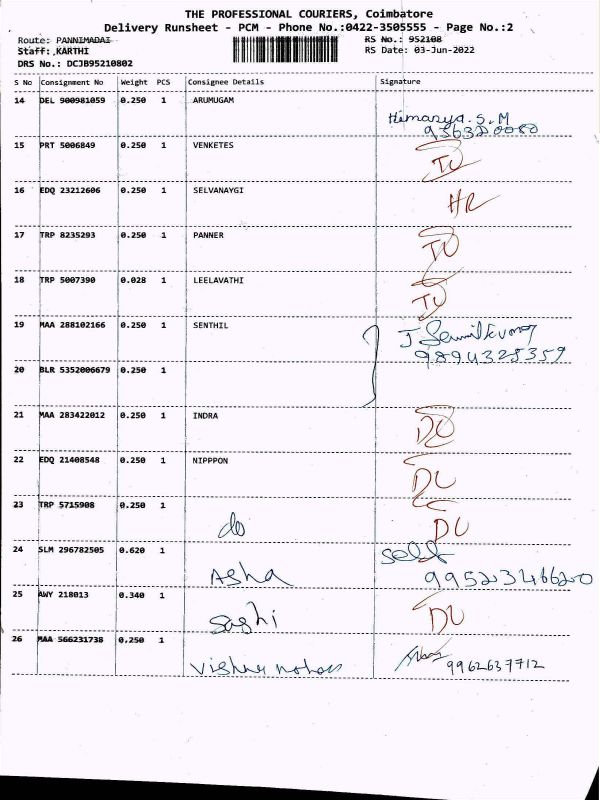 THE PROFESSIONAL COURIERS, Coimbatore
Delivery Runsheet - PCM - Phone No.:0422-3505555 - Page No.:2
Route: PANNIMADAI RS No.: 952108
Staff: ,KARTHI RS Date: 03-Jun-2022
DRS No.: DCJB95210802
S No Consignment No Weight PCS Consignee Details Signature
14 DEL 900981059 0.250 1 ARUMUGAM
S.M
15 PRT 5006849 0.250 1 VENKETES
16 EDQ 23212606 0.250 1 SELVANAYGI HR
17 TRP 8235293 0.250 1 PANNER
18 TRP 5007390 0.028 1 LEELAVATHI
19 MAA 288102166 0.250 1 SENTHIL
9894325359
20 BLR 5352006679 0.250 1
21 MAA 283422012 0.250 1 INDRA DU
22 EDQ 21408548 0.250 1 NIPPPON DU
23 TRP 5715908 0.250 1 do DU
24 SLM 296782505 0.620 1 Asha self
25 AWY 218013 0.340 1 Sashi DU
26 MAA 566231738 0.250 1
9962637712